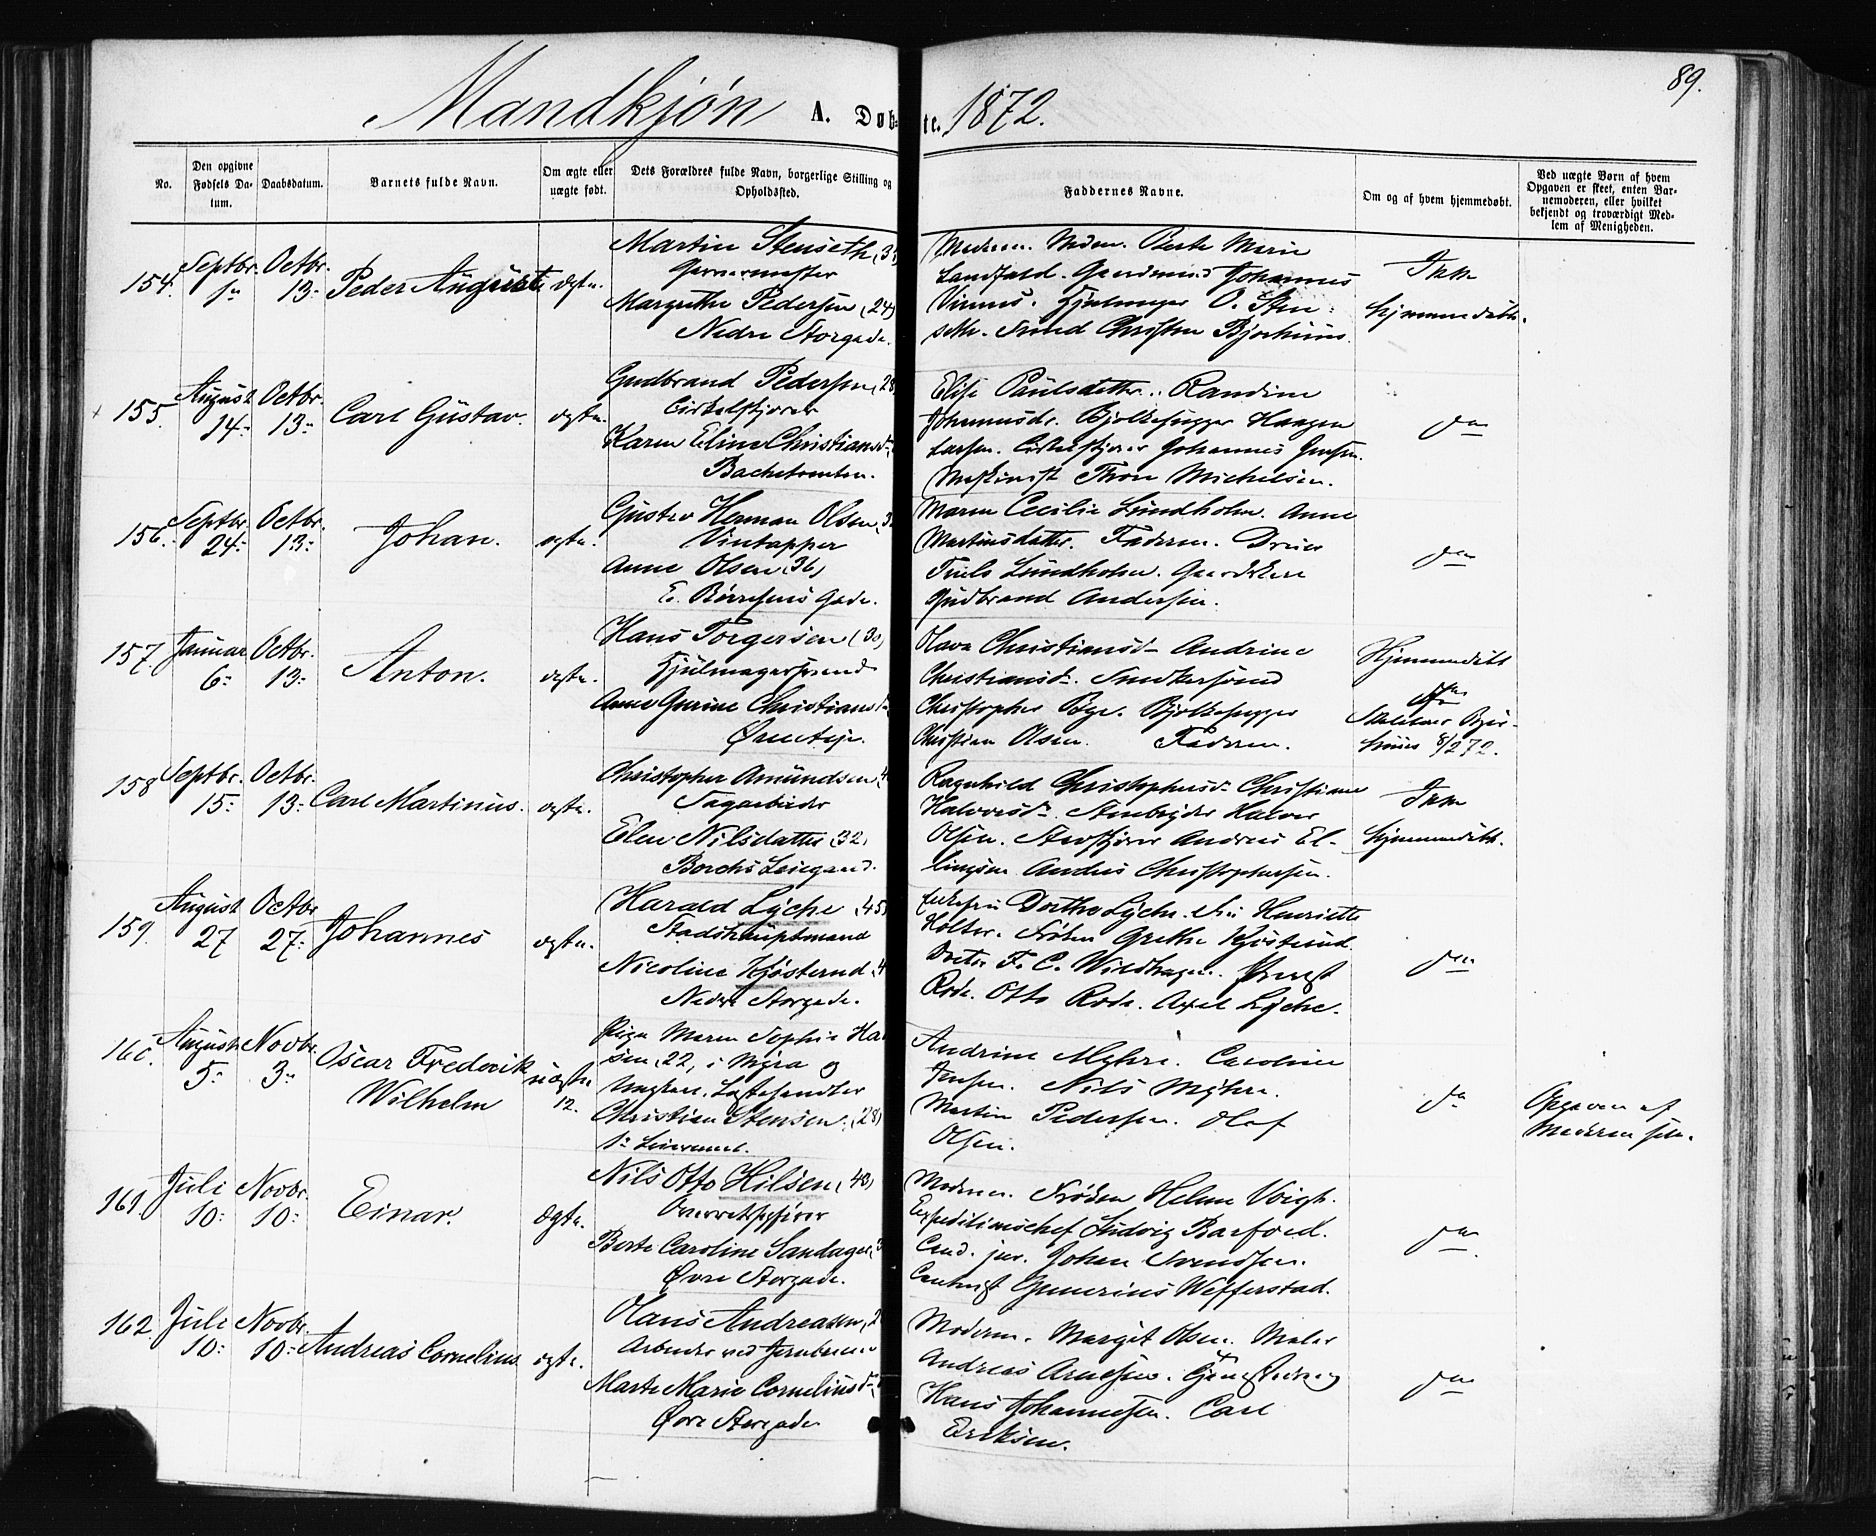 89.
Mandkjøn A. Døb- te. 1872.
No.
Den opgivne Fødsels Da-tum.
Daabsdatum.
Barnets fulde Navn.
Om ægte eller uægte født.
Dets Forældres fulde Navn, borgerlige Stilling og Opholdssted.
Faddernes Navne.
Om og af hvem hjemmedøbt.
Ved uægte Børn af hvem Opgaven er skeet, enten Bar-nemoderen, eller hvilket bekjendt og troværdigt Med-lem af Menigheden.
154. Septbr. Octbr. 13. Peder August ægte.
Martin Stenseth
Garvermester
Margrethe Pedersen (24)
Nedre Storgade.
Moderen. Marie
Landfald. Gaardmand Johannes
O. Sten-
seth. Svend Christen
Ikke
hjemmedøbt.
155. August 14. Octbr. 13. Carl Gustav. ægte.
Gudbrand Pedersen (28)
Cirkelskjærer
Karen Eline Christiansd.
Bachetomten.
Elise Paulsdatter. Randine
Johannesdr. Bjelkehugger Haagen
Larsen. Cirkelskjærer Johannes Jensen.
Maskinist Thore Michelsen.
do
156. Septbr. 24. Octbr. 13. Johan. ægte.
Gustav Herman Olsen
Vintapper
Anne Olsen (36)
E. Børresens Gade.
Maren Cecilie Lundholm. Anne
Martinsdatter. Faderen.
Lundholm.
Gudbrand Andersen.
do
157. Januar 6. Octbr. 13. Anton. ægte.
Hans Torgersen (30)
Hjulmagersvend
Anne Gurine Christiansd.
Øren Eje.
Olava Christiansd. Andrine
Christiansd. Snedkersvend
Christopher Bøge. Bjelkehugger
Christian Olsen. Faderen.
Hjemmedøbt
af
8/2 72.
158. Septbr. 15. Octbr. 13. Carl Martinus. ægte.
Christopher Amundsen
Sagarbeider
Elen Nilsdatter (32)
Borchs Leiegaard.
Ragnhild Christophersd. Christiane
Halvorsd. Stenbryder Halvor
Olsen. Andreas El-
lingsen. Anders Christophersen.
Ikke
hjemmedøbt.
159. August 27 Octbr 27. Johannes ægte.
Harald Lyche (45)
Stadshauptmand
Nicoline Kjøsterud
Nedre Storgade.
Dorthe Lyche. Fru Henriette
Holter. Frøken Grethe Kjøsterud.
Doctor F. C. Wildhagen.
Rode. Otto Rode. Axel Lyche.
do
160. August 5. Novbr. 3. Oscar Frederik Wilhelm uægte 12.
Pige Maren Sophie Han
sen (22) i Myra og
Ungkarl. Lastehandler
Christian Stensen. (28)
Andrine Myhre. Caroline
Jensen. Nils Myhre.
Martin Pedersen. Olaf
Olsen.
do
Opgaven af
Moderen selv.
161. Juli 10. Novbr. 10. Einar. ægte.
Nils Otto Hilsen (40)
Overretssagfører
Berte Caroline Sandager
Øvre Storgade.
Moderen. Frøken Helene Voigt.
Expeditionschef Ludvig Barfoed.
Cand. jur. Johan Svendsen.
Contorist Gunerius Wefferstad.
do
162. Juli 10. Novbr. 10. Andreas Cornelius ægte.
Hans Andreasen
Arbeider ved Jernbanen
Marte Marie Corneliusd.
Øvre Storgade
Moderen. Margit Olsen. Maler
Andreas Arnesen.
Hans Johannesen. Carl
Eriksen.
do